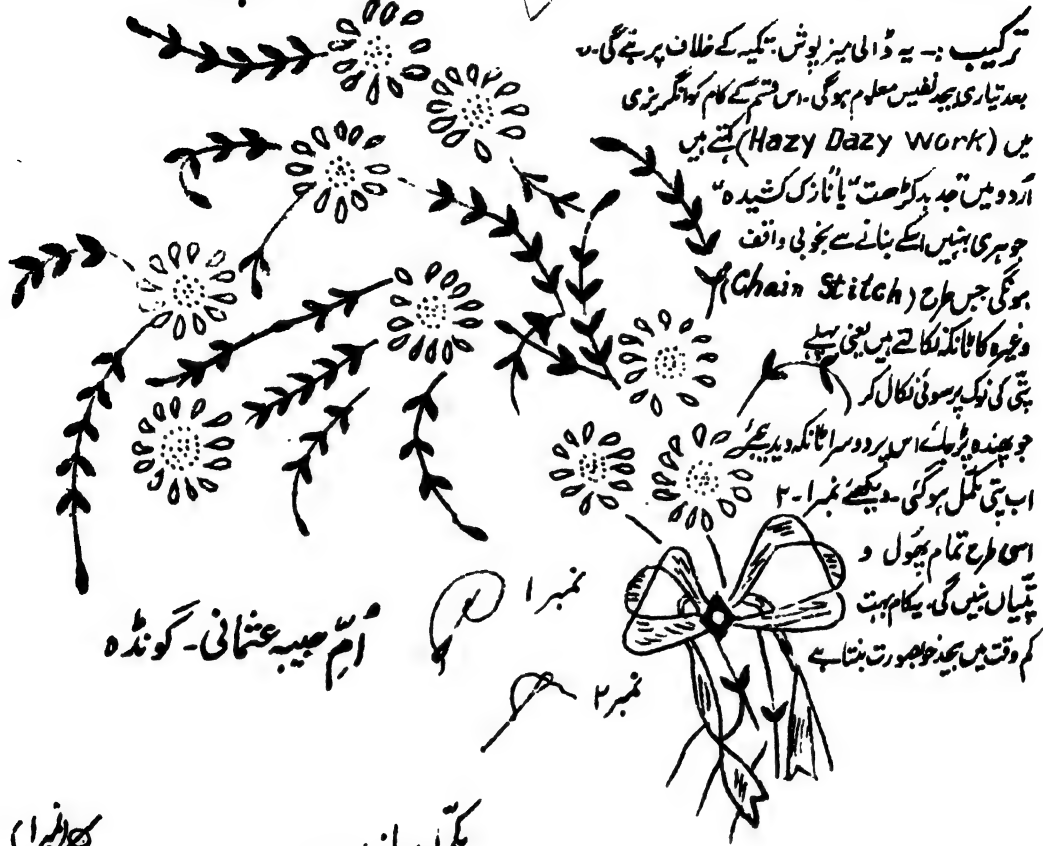 ترکیب :- یہ ڈالی میز پوش۔ تکیہ کے غلاف پر بنے گی۔
بعد تیاری بیحد نفیس معلوم ہوگی۔ اس قسم کے کام کو انگریزی
میں (Hazy Dazy work) کہتے ہیں
اُردو میں "جدید کڑھت" یا "نازک کشیدہ"
جو ہری بہنیں اسکے بنانے سے بخوبی واقف
ہونگی جس طرح (Chain Stitch)
وغیرہ کا ٹانکہ نکالتے ہیں یعنی پہلے
پتّی کی نوک پر سوئی نکال کر
جو پھندہ پڑ جائے اس پر دوسرا ٹانکہ دیدیجئے
اب پتی مکمل ہو گئی۔ دیکھئے نمبر ۱۔ ۲
اسی طرح تمام پھول و
پتّیاں بنیں گی۔ یہ کام بہت
کم وقت میں بیحد خوبصورت بنتا ہے
نمبر ۱
اُمِّ حبیبہ عثمانی۔ گونڈہ
نمبر ۲
(نمبر ۱)